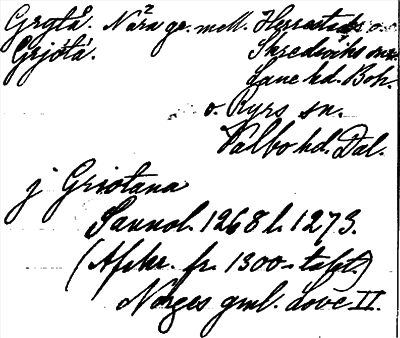 Grytå. Nära gr. mell. Herrestads o.
Grjótá. Skredsviks snr
Lane hd. Boh.
o. Ryrs sn.
Valbo hd. Dal.
j Griotana
Sannol. 1268 l. 1273.
(Afskr. fr. 1300-talet.)
Norges gml. love II.